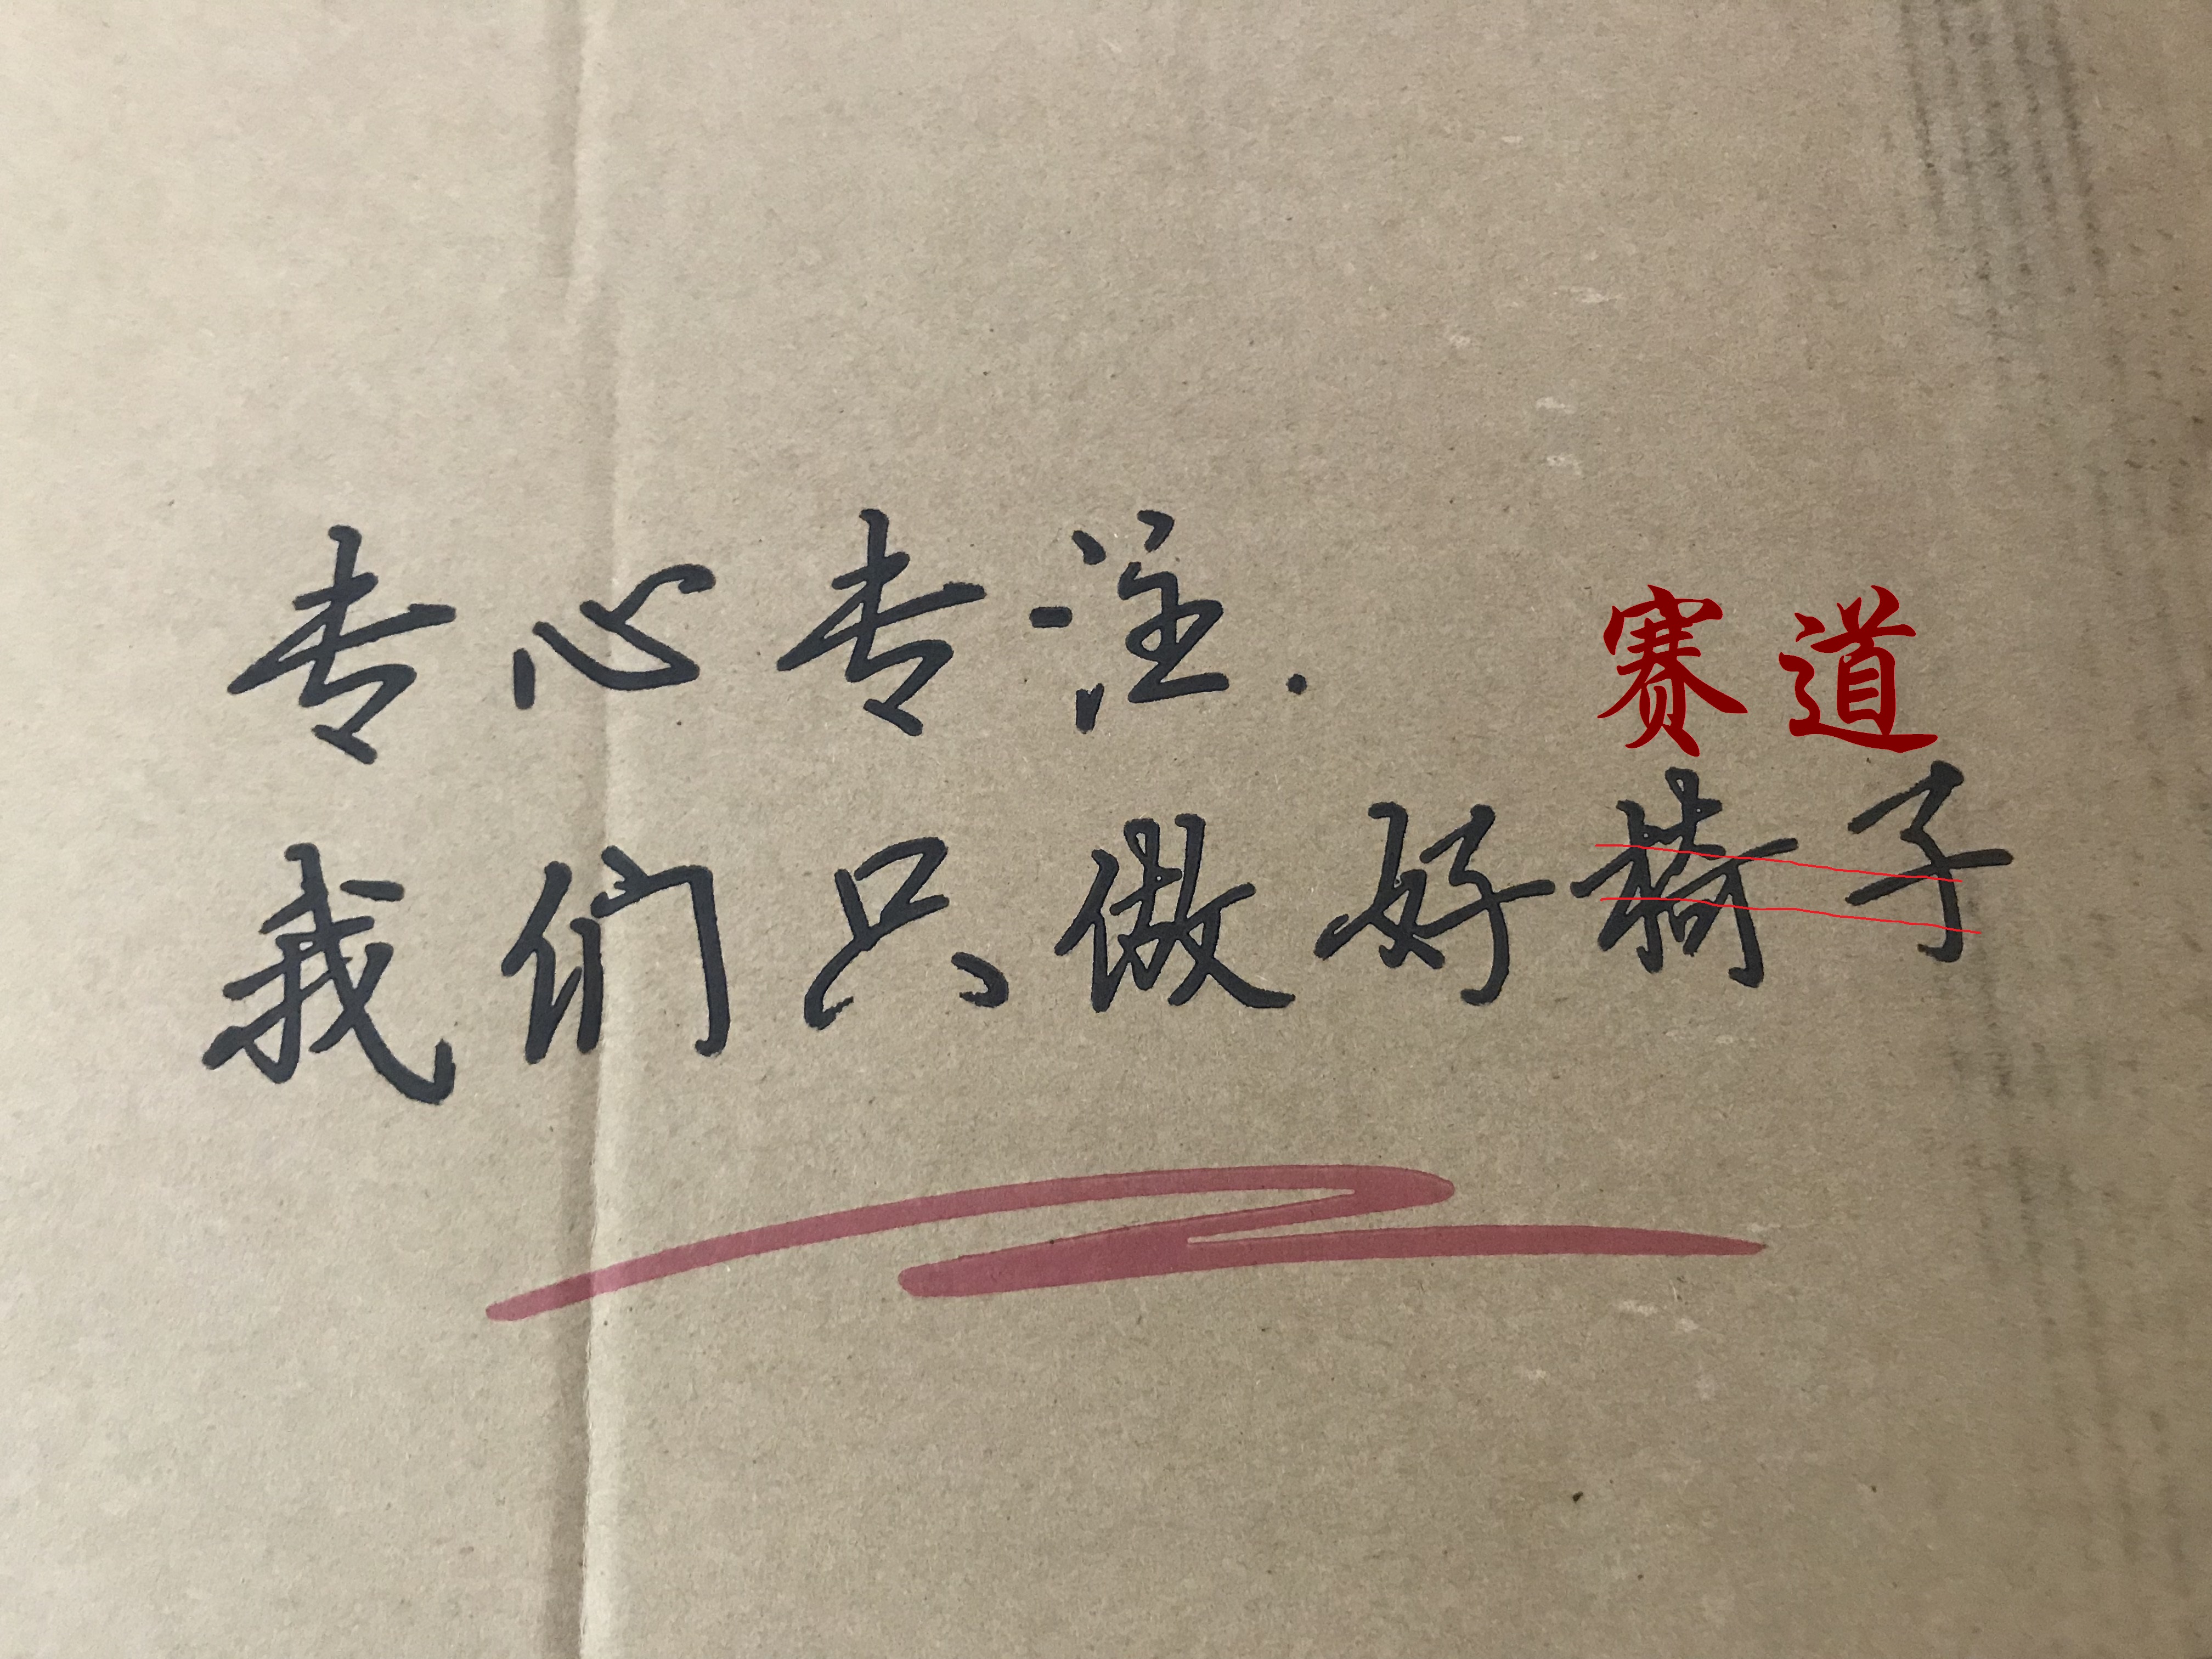 专心专注.
赛道
我们只做好椅子